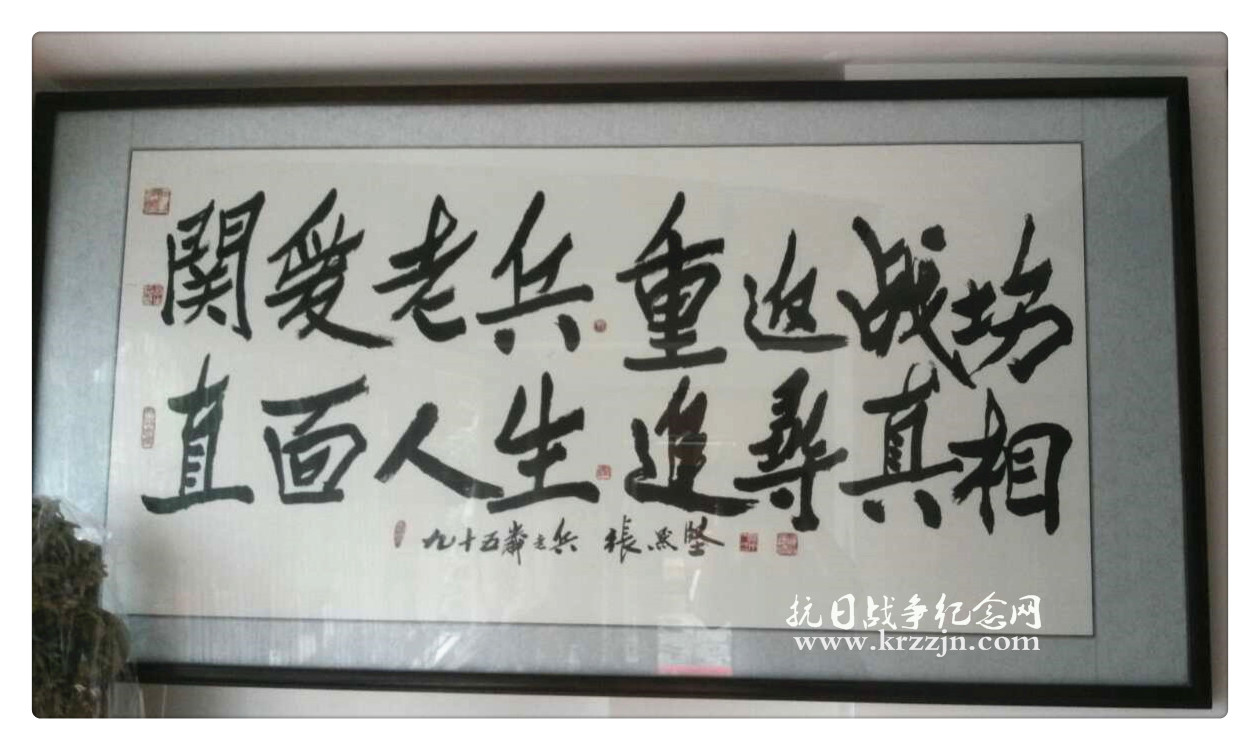 関爱老兵重返战场
直面人生追寻真相
九十五歲老兵 張
抗日战争纪念网
www.krzzjn.com